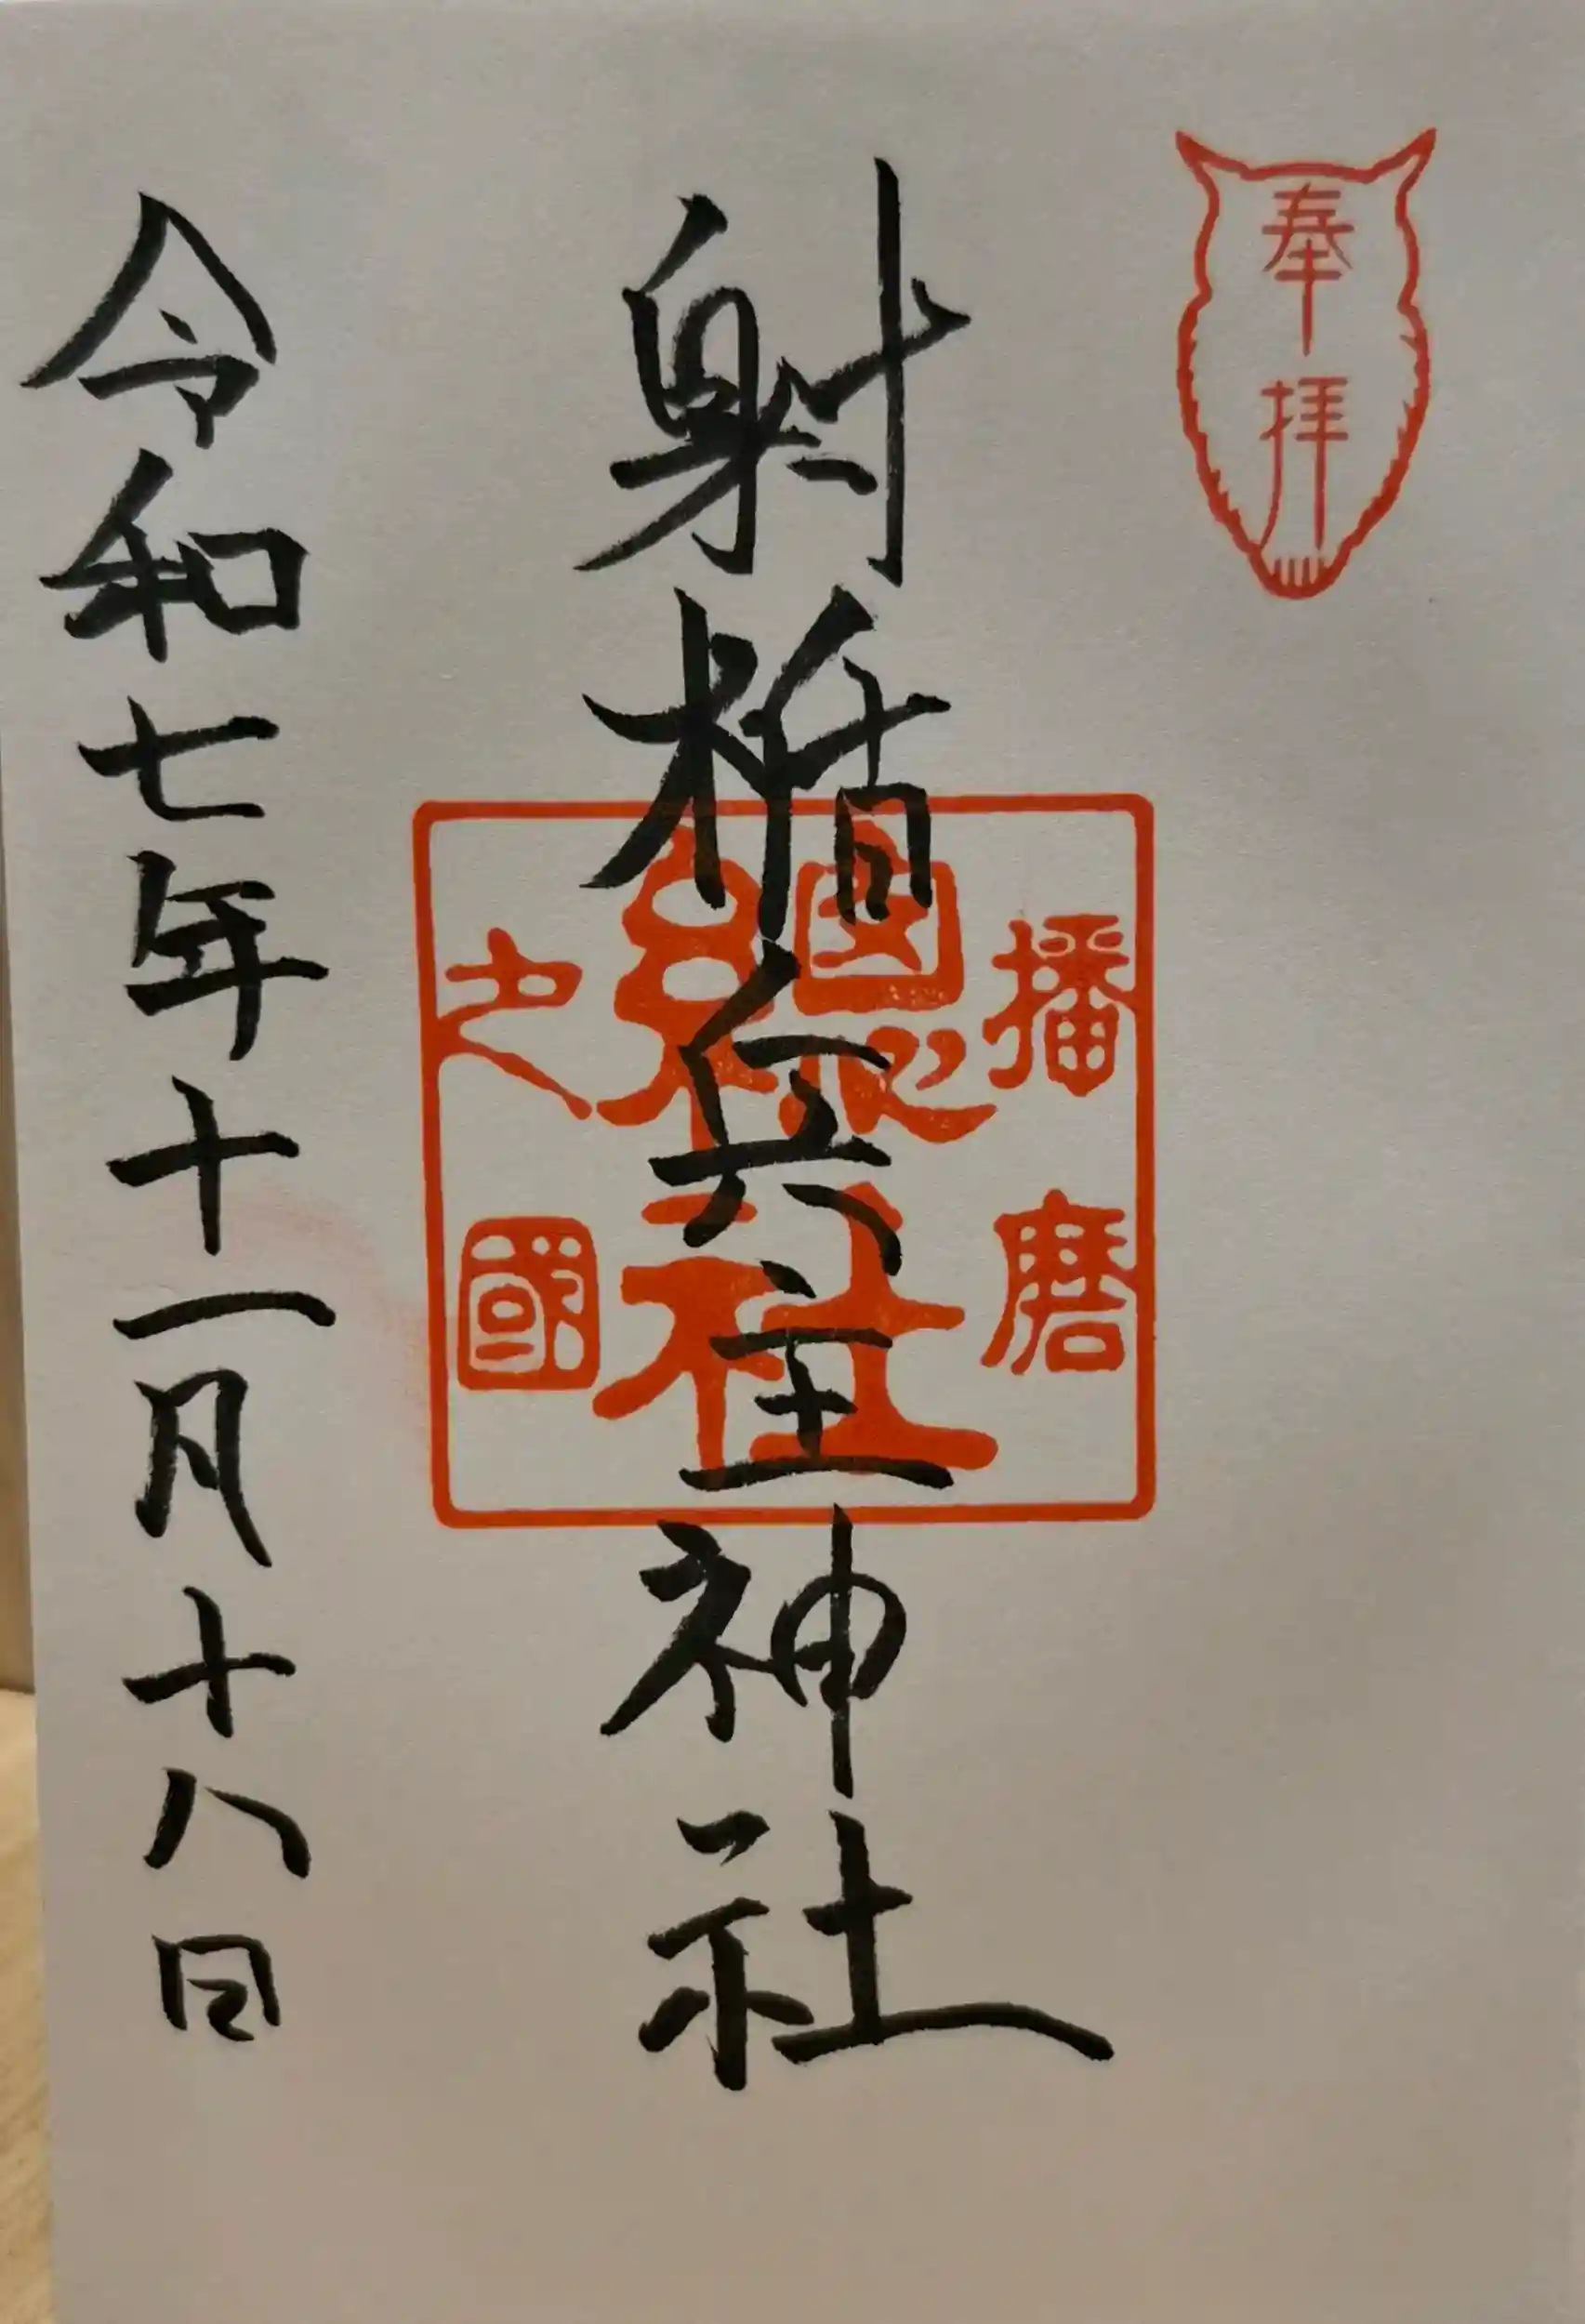 奉拝
射楯兵主神社
播磨
總社
之國
令和七年十一月十八日